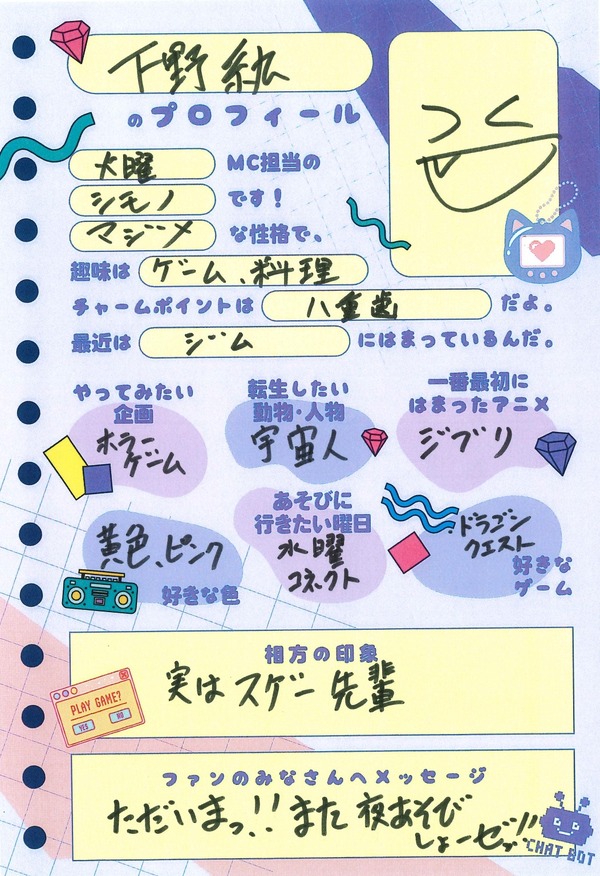 下野 紘
のプロフィール
火曜 MC担当の
シモノ です！
マジメ な性格で、
趣味は ゲーム、料理
チャームポイントは 八重歯 だよ。
最近は ジム にはまっているんだ。
やってみたい
企画
ホラー
ゲーム
転生したい
動物・人物
宇宙人
一番最初に
はまったアニメ
ジブリ
黄色、ピンク
好きな色
あそびに
行きたい曜日
水曜
コネクト
ドラゴン
クエスト
好きな
ゲーム
相方の印象
実はスゲー先輩
PLAY GAME?
YES NO
ファンのみなさんへメッセージ
ただいまっ!! また夜あそび
しよーゼッ!!
CHAT BOT